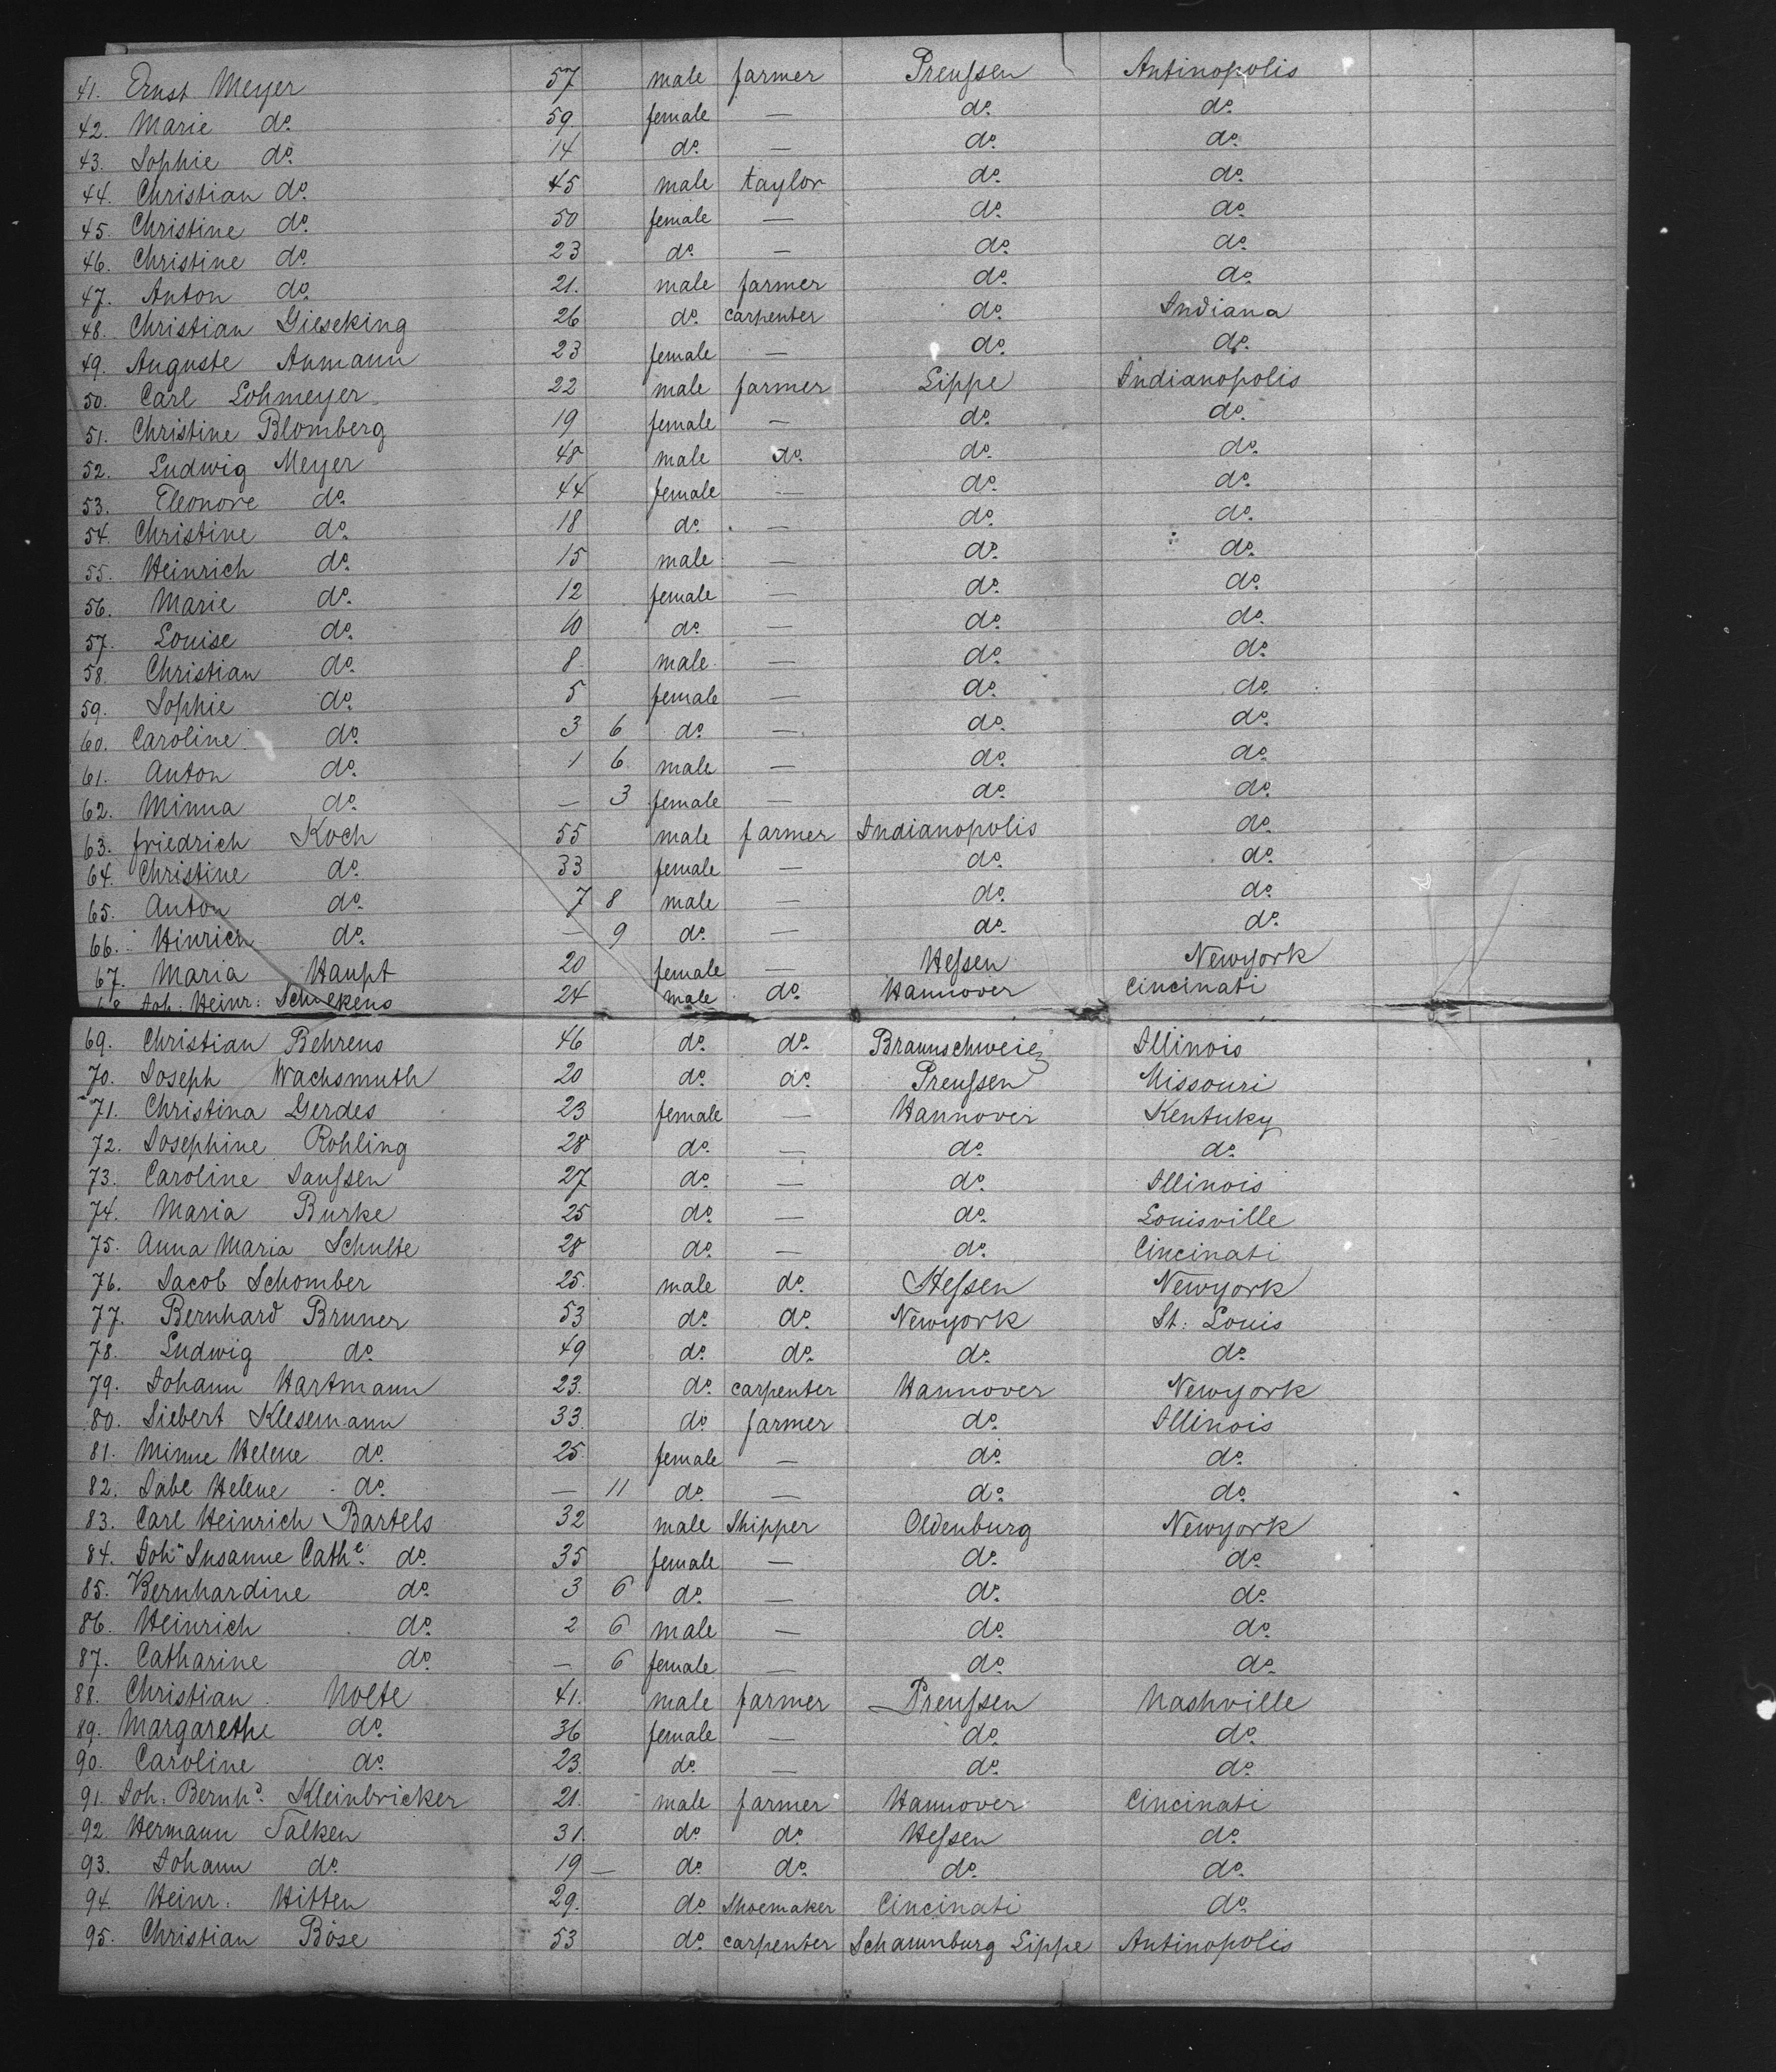 41. Ernst Meyer 57 male farmer Preußen Antinopolis
42. Marie do. 59 female — do. do.
43. Sophie do. 14 do. — do. do.
44. Christian do. 45 male taylor do. do.
45. Christine do. 50 female — do. do.
46. Christine do. 23 do. — do. do.
47. Anton do. 21. male farmer do. do.
48. Christian Gieseking 26 do. carpenter do. Indiana
49. Auguste Aumann 23 female — do. do.
50. Carl Lohmeyer 22 male farmer Lippe Indianopolis
51. Christine Blomberg 19 female — do. do.
52. Ludwig Meyer 48 male do. do. do.
53. Eleonore do. 44 female — do. do.
54. Christine do. 18 do. — do. do.
55. Heinrich do. 15 male — do. do.
56. Marie do. 12 female — do. do.
57. Louise do. 10 do. — do. do.
58. Christian do. 8. male — do. do.
59. Sophie do. 5 female — do. do.
60. Caroline do. 3 6 do. — do. do.
61. Anton do. 1 6 male — do. do.
62. Minna do. — 3 female — do. do.
63. Friedrich Koch 55 male farmer Indianopolis do.
64. Christine do. 33 female — do. do.
65. Anton do. 7 8 male — do. do.
66. Hinrich do. — 9 do. — do. do.
67. Maria Haupt 20 female — Heßen Newyork
68 Joh: Heinr: 24 male do. Hannover Cincinati
69. Christian Behrens 46 do. do. Braunschweig Illinois
70. Joseph Wachsmuth 20 do. do. Preußen Missouri
71. Christina Gerdes 23 female — Hannover Kentuky
72. Josephine Rohling 28 do. — do. do.
73. Caroline Janßen 27 do. — do. Illinois
74. Maria Burke 25 do. — do. Louisville
75. Anna Maria Schulte 28 do. — do. Cincinati
76. Jacob Schomber 25. male do. Heßen Newyork
77. Bernhard Bruner 53 do. do. Newyork St: Louis
78. Ludwig do. 49 do. do. do. do.
79. Johann Hartmann 23. do. carpenter Hannover Newyork
80. Siebert Klesemann 33. do. farmer do. Illinois
81. Minne Helene do. 25. female — do. do.
82. Helene do. — 11 do. — do. do.
83. Carl Heinrich Bartels 32 male Shipper Oldenburg Newyork
84. John Susanne Cathe. do. 35 female — do. do.
85. Bernhardine do. 3 6 do. — do. do.
86. Heinrich do. 2 6 male — do. do.
87. Catharine do. — 6 female — do. do.
88. Christian Nolte 41. male farmer Preußen Nashville
89. Margarethe do. 36 female — do. do.
90. Caroline do. 23. do. — do. do.
91. Joh: Bernhd. Kleinbricker 21. male farmer Hannover Cincinati
92. Hermann Talken 31. do. do. Heßen do.
93. Johann do. 19 — do. do. do. do.
94. Heinr: Hitten 29. do. Shoemaker Cincinati do.
95. Christian Böse 53 do. carpenter Schaumburg Lippe Antinopolis